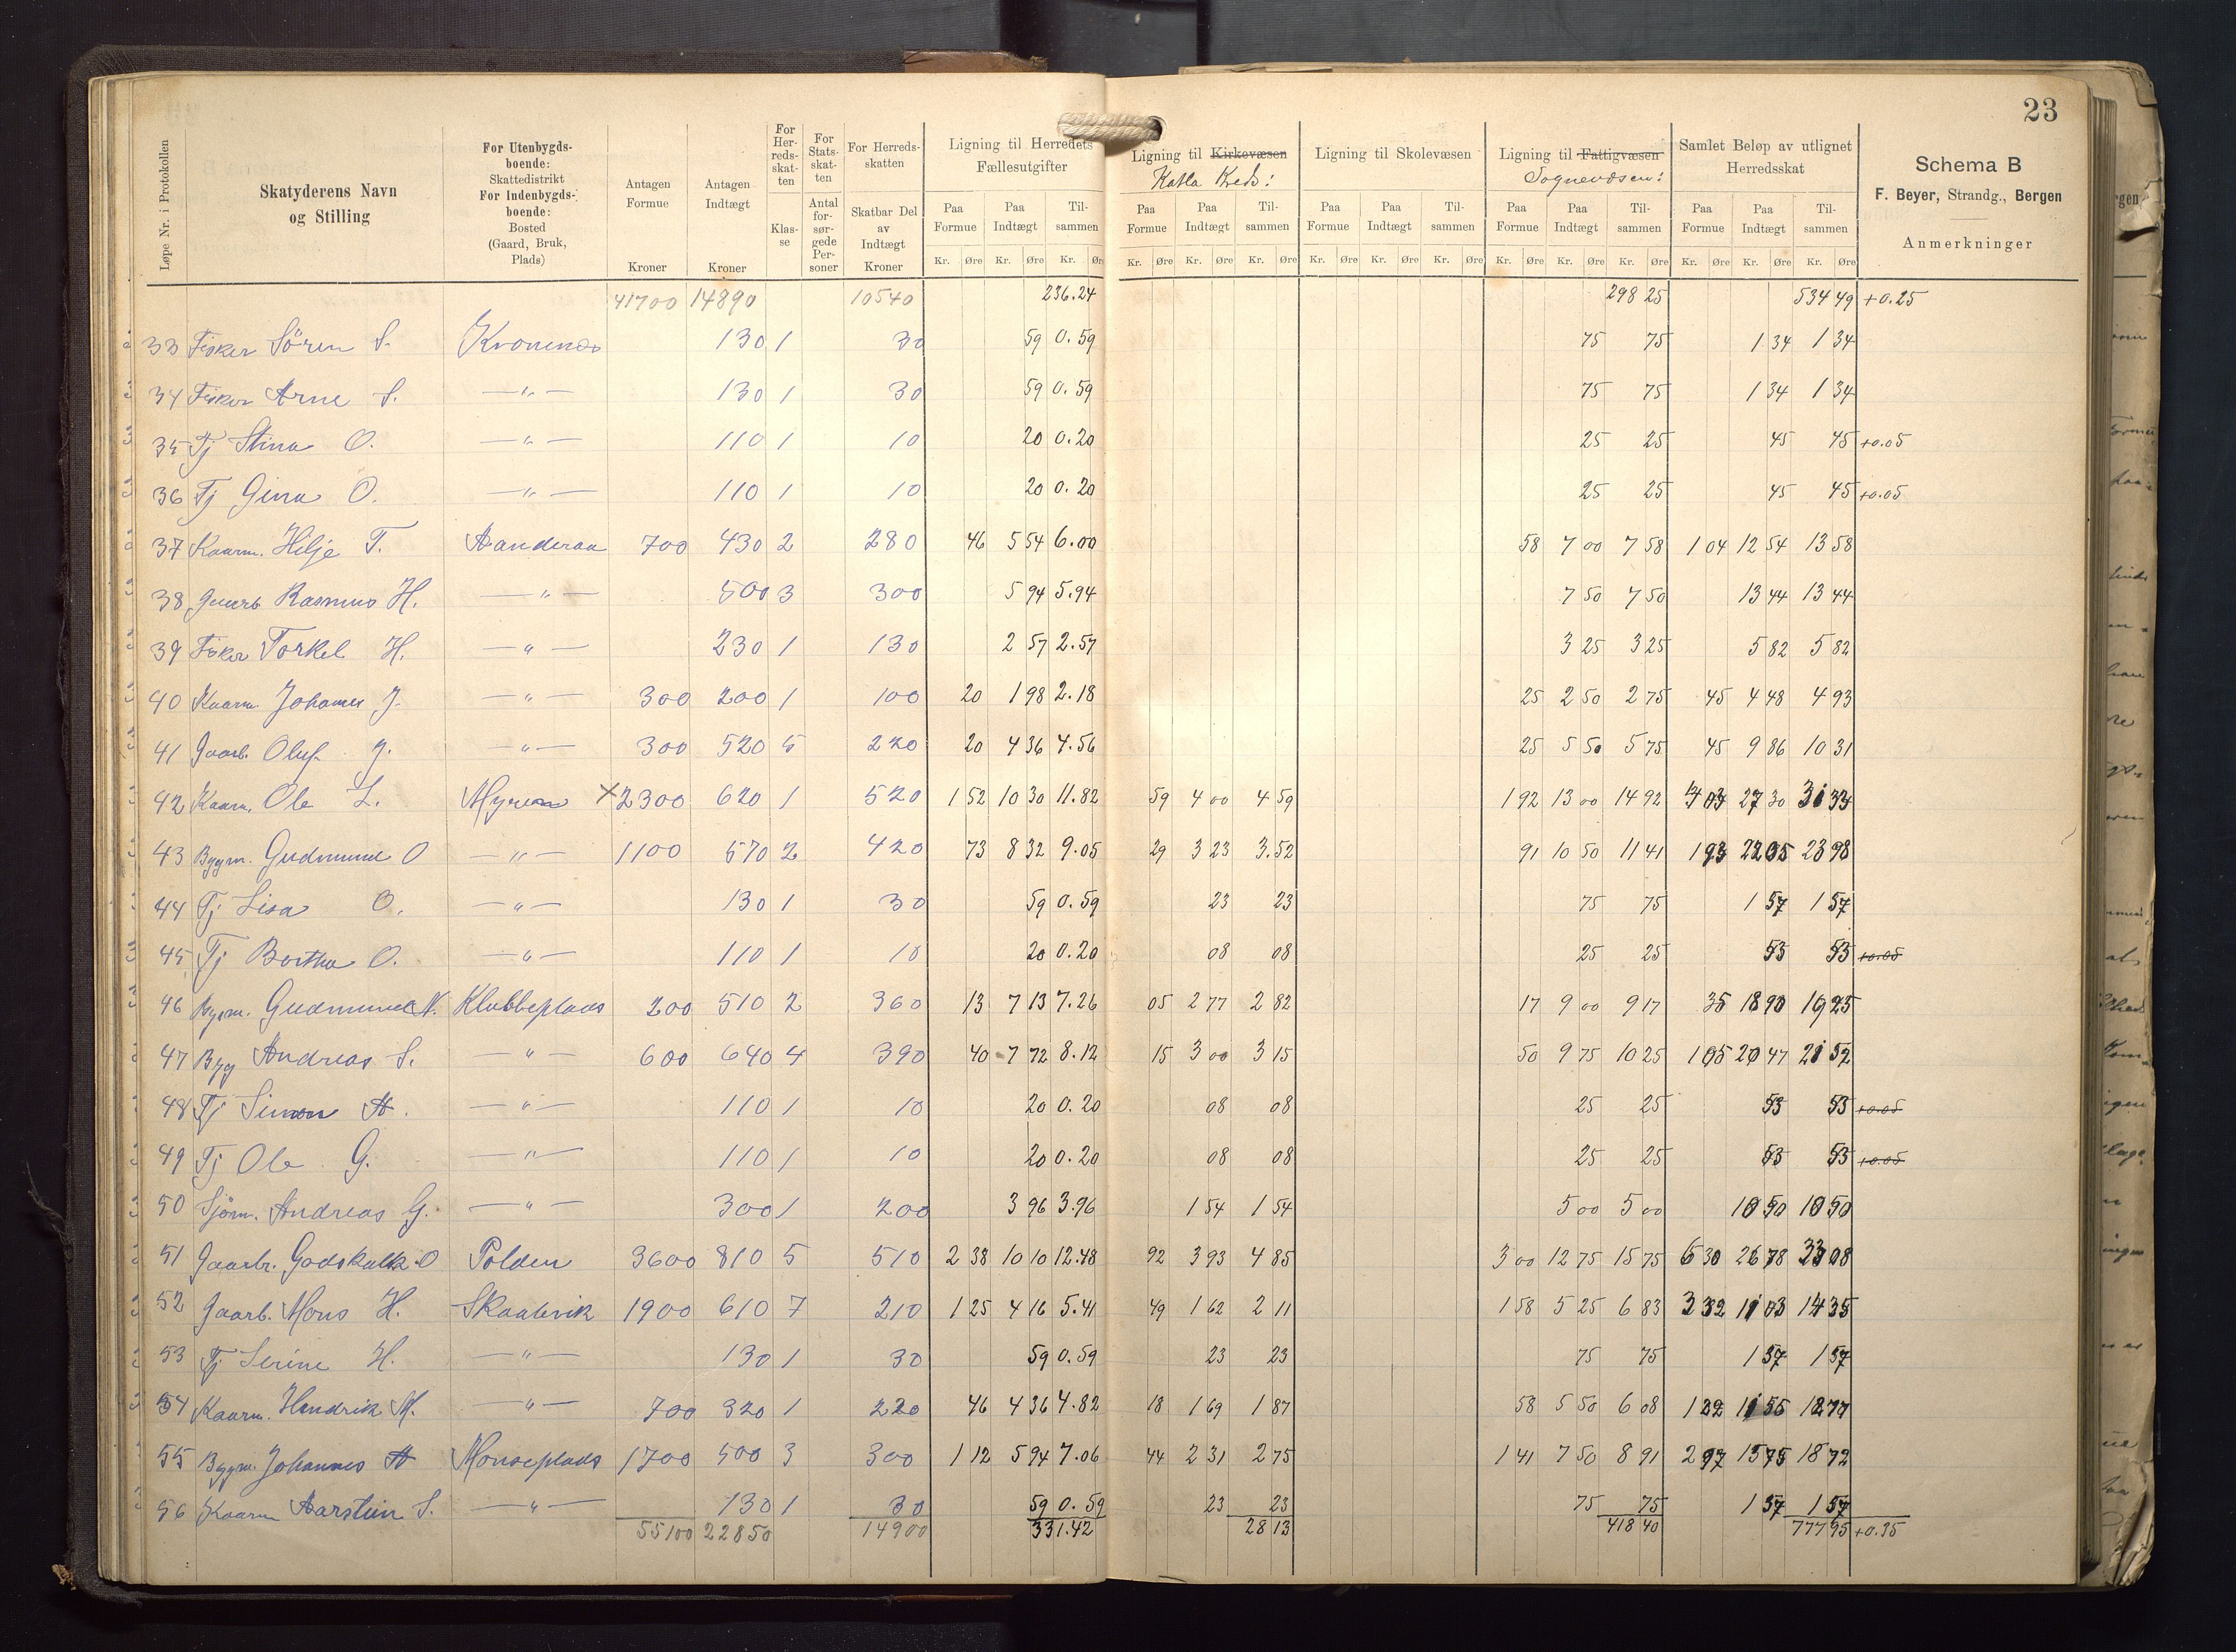 23
Løpe Nr. i Protokollen | Skatyderens Navn og Stilling | For Utenbygds-boende: Skattedistrikt For Indenbygds-boende: Bosted (Gaard, Bruk, Plads) | Antagen Formue Kroner | Antagen Indtægt Kroner | For Herreds-skatten Klas-se | For Stats-skat-ten Antal for-sør-gede Per-soner | For Herreds-skatten Skatbar Del av Indtægt Kroner | Ligning til Herredets Fællesutgifter | Ligning til Kirkevæsen Katla Kreds: | Ligning til Skolevæsen | Ligning til Fattigvæsen Sognevæsen: | Samlet Beløp av utlignet Herredsskat | Schema B
F. Beyer, Strandg., Bergen
Anmerkninger
Paa Formue | Paa Indtægt | Til-sammen | Paa Formue | Paa Indtægt | Til-sammen | Paa Formue | Paa Indtægt | Til-sammen | Paa Formue | Paa Indtægt | Til-sammen | Paa Formue | Paa Indtægt | Til-sammen
Kr. Øre Kr. Øre Kr. Øre Kr. Øre Kr. Øre Kr. Øre Kr. Øre Kr. Øre Kr. Øre Kr. Øre Kr. Øre Kr. Øre Kr. Øre Kr. Øre Kr. Øre
41700 14890 10540 236.24 298 25 534 49 +0.25
33 Fisker Sören S. Kronenes 130 1 30 59 0.59 75 75 1 34 1 34
34 Fisker Arne S. —"— 130 1 30 59 0.59 75 75 1 34 1 34
35 Tj Stina O. —"— 110 1 10 20 0.20 25 25 45 45 +0.05
36 Tj Gina O. —"— 110 1 10 20 0.20 25 25 45 45 +0.05
37 Kaarm. Hilje T. Aanderaa 700 430 2 280 46 5 54 6.00 58 7 00 7 58 1 04 12 54 13 58
38 Rasmus H. —"— 500 3 300 5 94 5.94 7 50 7 50 13 44 13 44
39 Fisker Torkel H. —"— 230 1 130 2 57 2.57 3 25 3 25 5 82 5 82
40 Kaarm. Johannes J. —"— 300 200 1 100 20 1 98 2.18 25 2 50 2 75 45 4 48 4 93
41 Gaarb. Oluf J. —"— 300 520 5 220 20 4 36 4.56 25 5 50 5 75 45 9 86 10 31
42 Kaarm. Ole L. Myren × 2300 620 1 520 1 52 10 30 11.82 59 4 00 4 59 1 92 13 00 14 92 4 03 27 30 31 33
43 Bygm. Gudmund O —"— 1100 570 2 420 73 8 32 9.05 29 3 23 3.52 91 10 50 11 41 1 93 22 05 23 98
44 Tj Lisa O. —"— 130 1 30 59 0.59 23 23 75 75 1 57 1 57
45 Tj Bertha O. —"— 110 1 10 20 0.20 08 08 25 25 53 53 +0.05
46 Bygm. Gudmund N. Klubbeplads 200 510 2 360 13 7 13 7.26 05 2 77 2 82 17 9 00 9 17 35 18 90 19 25
47 Byg Andreas S. —"— 600 640 4 390 40 7 72 8.12 15 3 00 3 15 50 9 75 10 25 1 05 20 47 21 52
48 Tj Simon A. —"— 110 1 10 20 0.20 08 08 25 25 53 53 +0.05
49 Tj Ole G. —"— 110 1 10 20 0.20 08 08 25 25 53 53 +0.05
50 Sjøm. Andreas G. —"— 300 1 200 3 96 3.96 1 54 1 54 5 00 5 00 10 50 10 50
51 Gaarbr. Godskalk O Polden 3600 810 5 510 2 38 10 10 12.48 92 3 93 4 85 3 00 12 75 15 75 6 30 26 78 33 08
52 Gaarb. Mons H. Skaalevik 1900 610 7 210 1 25 4 16 5.41 49 1 62 2 11 1 58 5 25 6 83 3 32 11 03 14 35
53 Tj Serine H. —"— 130 1 30 59 0.59 23 23 75 75 1 57 1 57
54 Kaarm. Hendrik M. —"— 700 320 1 220 46 4 36 4.82 18 1 69 1 87 58 5 50 6 08 1 22 11 55 12 77
55 Bygm. Johannes A Monseplads 1700 500 3 300 1 12 5 94 7.06 44 2 31 2 75 1 41 7 50 8 91 2 97 15 75 18 72
56 Kaarm Aarstein S. —"— 130 1 30 59 0.59 23 23 75 75 1 57 1 57
55100 22850 14900 331.42 28 13 418 40 777 95 +0.35